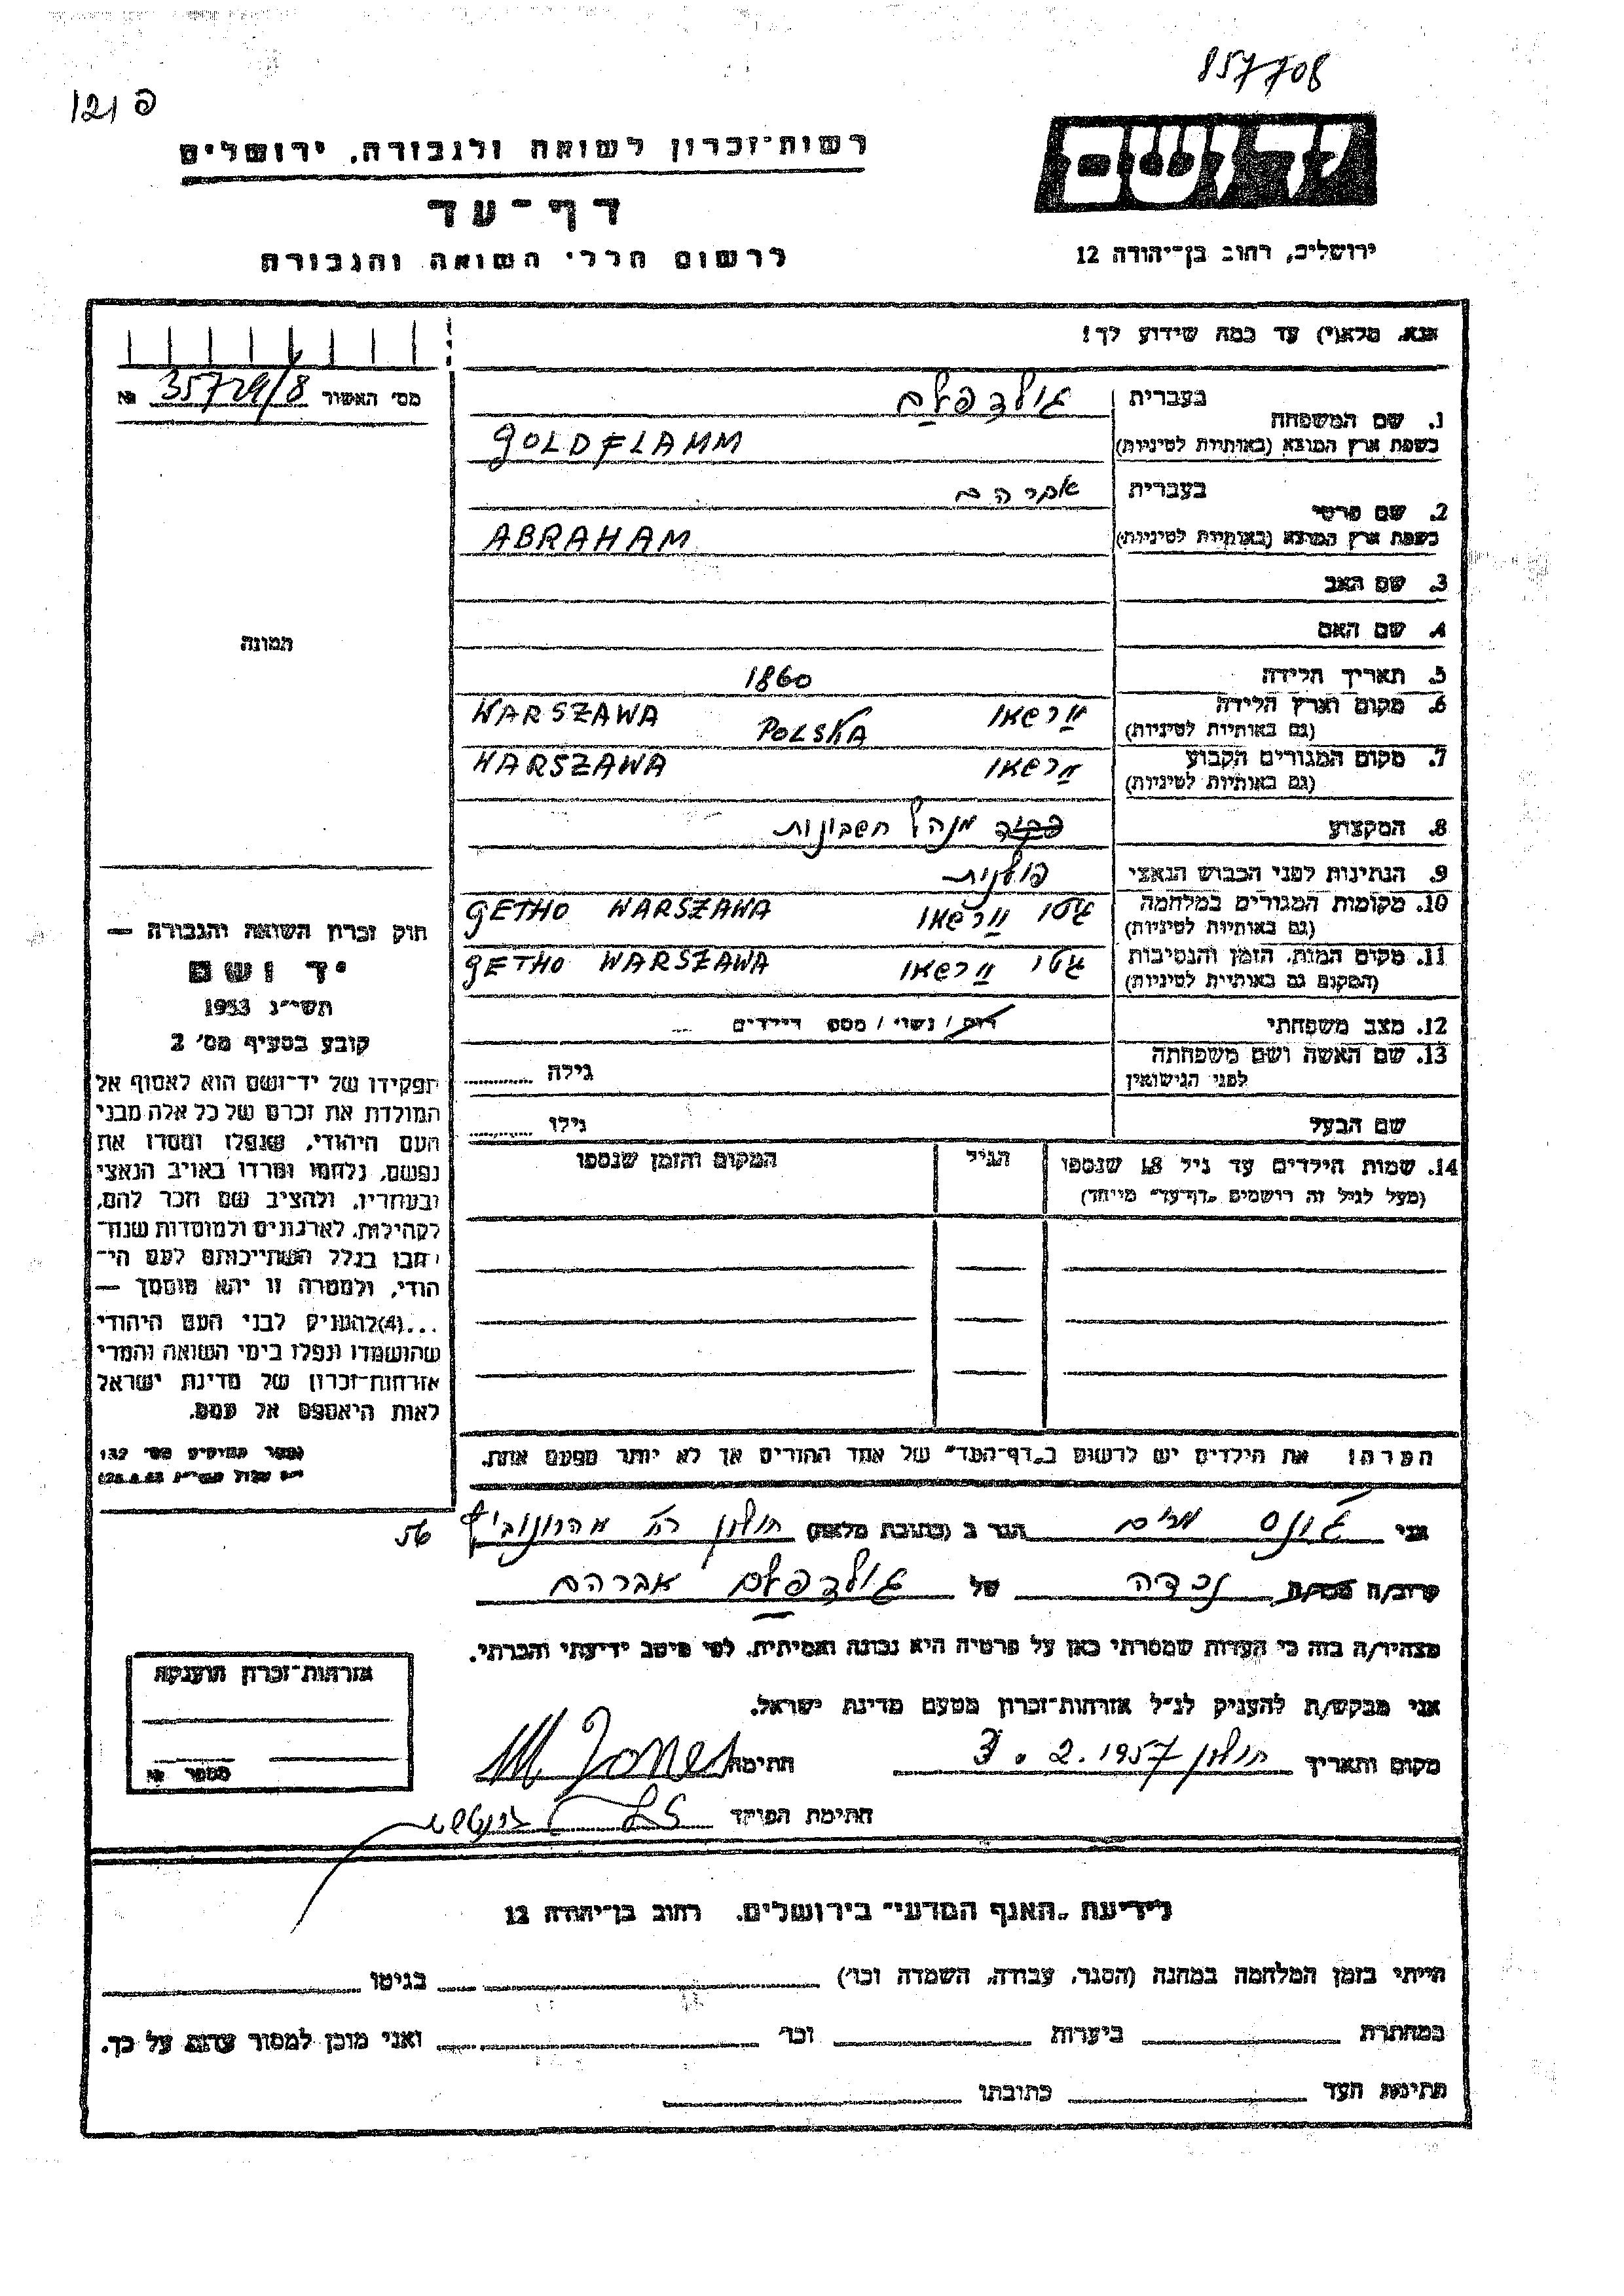 857708
פ 121
יד ושם
רשות־זכרון לשואה ולגבורה, ירושלים
דף־עד
לרשום חללי השואה והגבורה
ירושלים, רחוב בן־יהודה 12
אנא, מלא(י) עד כמה שידוע לך!
מס׳ האשור 35729/8 №
תמונה
1. שם המשפחה
בעברית גולדפלם
בשפת ארץ המוצא (באותיות לטיניות) GOLDFLAMM
2. שם פרטי
בעברית אברהם
בשפת ארץ המוצא (באותיות לטיניות) ABRAHAM
3. שם האב
4. שם האם
5. תאריך הלידה 1860
6. מקום וארץ הלידה וורשאו WARSZAWA
(גם באותיות לטיניות) POLSKA
7. מקום המגורים הקבוע וורשאו WARSZAWA
(גם באותיות לטיניות)
8. המקצוע מנהל חשבונות
9. הנתינות לפני הכבוש הנאצי פולנית
10. מקומות המגורים במלחמה גטו וורשאו GETHO WARSZAWA
(גם באותיות לטיניות)
11. מקום המות, הזמן והנסיבות גטו וורשאו GETHO WARSZAWA
(המקום גם באותיות לטיניות)
12. מצב משפחתי רוק / נשוי / מספר הילדים ...
13. שם האשה ושם משפחתה
לפני הנישואין גילה
שם הבעל גילו
14. שמות הילדים עד גיל 18 שנספו הגיל המקום והזמן שנספו
(מעל לגיל זה רושמים „דף־עד״ מיוחד)
חוק זכרון השואה והגבורה —
יד ושם
תשי״ג 1953
קובע בסעיף מס׳ 2
תפקידו של יד־ושם הוא לאסוף אל
המולדת את זכרם של כל אלה מבני
העם היהודי, שנפלו ומסרו את
נפשם, נלחמו ומרדו באויב הנאצי
ובעוזריו, ולהציב שם וזכר להם,
לקהילות, לארגונים ולמוסדות שנח־
רבו בגלל השתייכותם לעם הי־
הודי, ולמטרה זו יהא מוסמך —
...(4) להעניק לבני העם היהודי
שהושמדו ונפלו בימי השואה והמרי
אזרחות־זכרון של מדינת ישראל
לאות היאספם אל עמם.
הערה: את הילדים יש לרשום ב„דף־העד״ של אחד ההורים אך לא יותר מפעם אחת.
אני ג׳ונס מרים הגר ב (כתובת מלאה) חולון רח׳ אהרונוביץ 56
קרוב/ה נכדה של גולדפלם אברהם
מצהיר/ה בזה כי העדות שמסרתי כאן על פרטיה היא נכונה ואמיתית, לפי מיטב ידיעתי והכרתי.
אני מבקש/ת להעניק לנ״ל אזרחות־זכרון מטעם מדינת ישראל.
מקום ותאריך חולון 3.2.1957 חתימה M Jones
חתימת הפוקד
אזרחות־זכרון הוענקה
מספר №
לידיעת „האגף המדעי״ בירושלים, רחוב בן־יהודה 12
הייתי בזמן המלחמה במחנה (הסגר, עבודה, השמדה וכו׳) בגיטו
במחתרת ביערות וכו׳ ואני מוכן למסור עדות על כך.
חתימת העד כתובתו